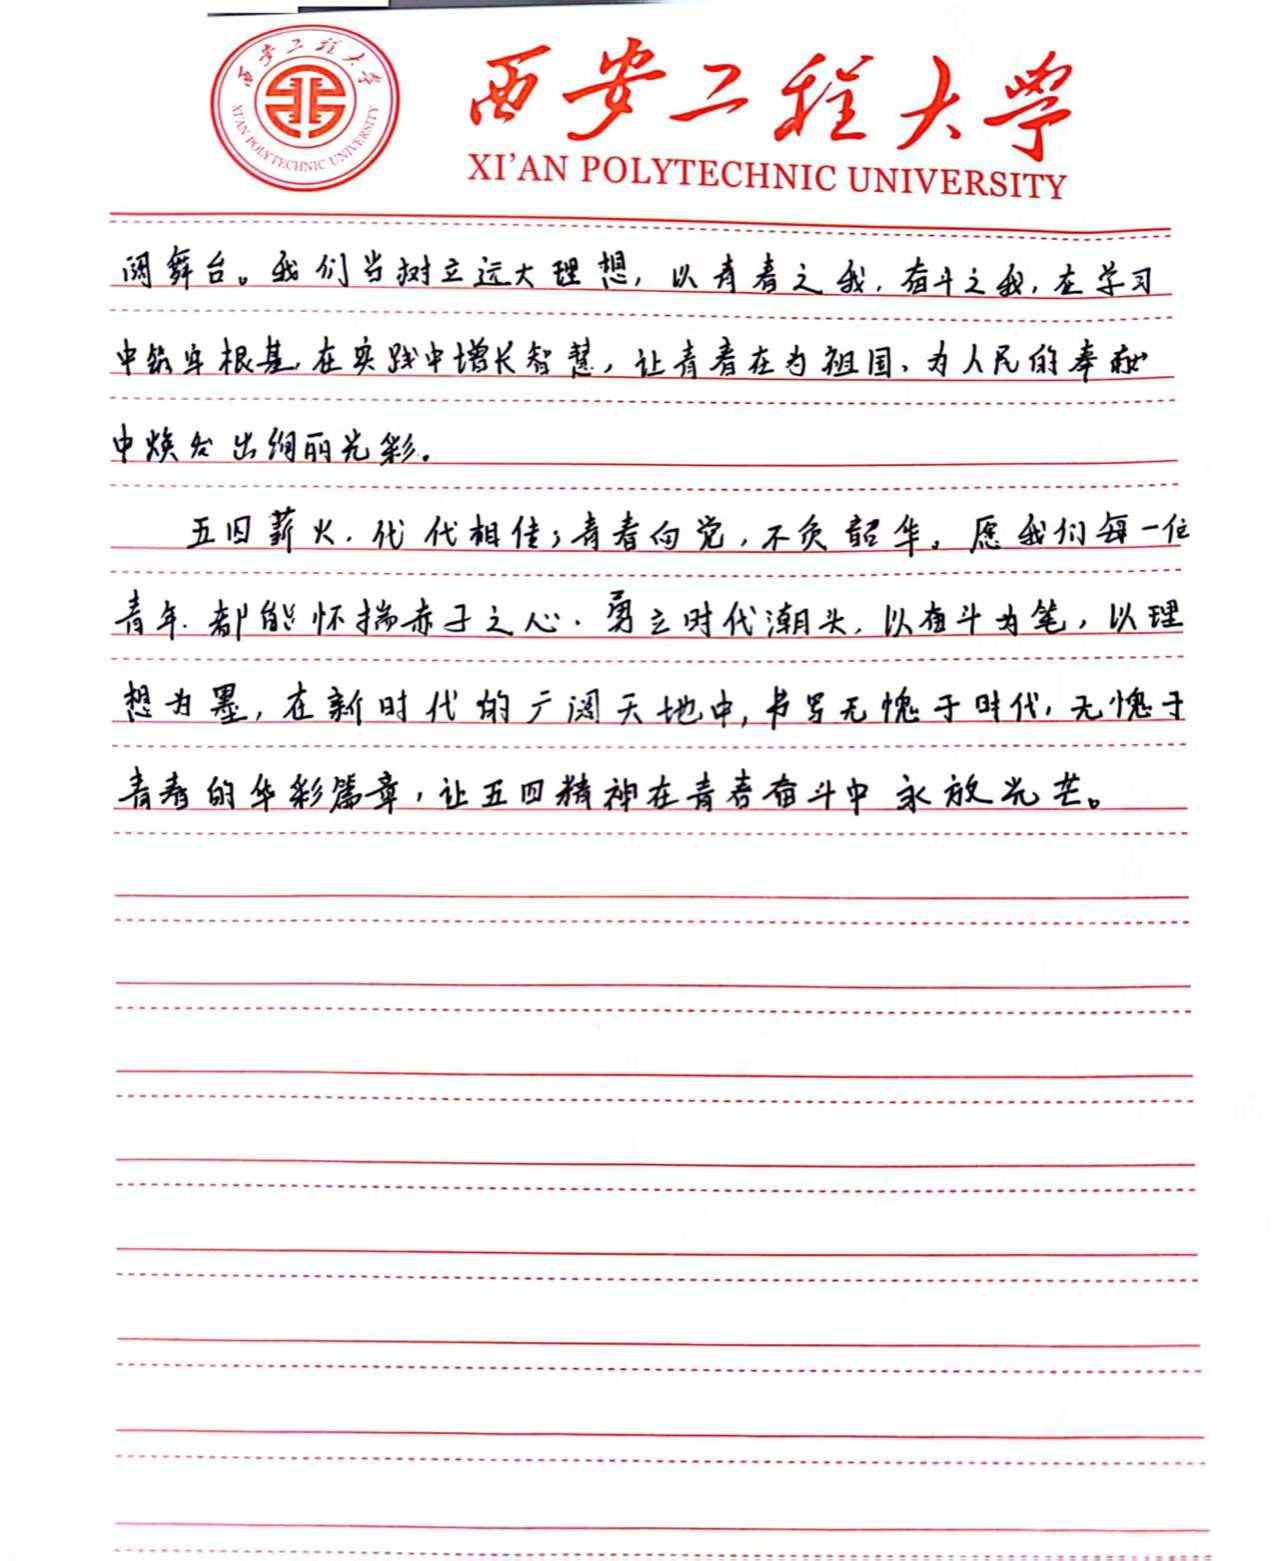 西安工程大学
XI'AN POLYTECHNIC UNIVERSITY
西安工程大学
XI'AN POLYTECHNIC UNIVERSITY
阔舞台。我们当树立远大理想，以青春之我，奋斗之我，在学习
中筑牢根基，在实践中增长智慧，让青春在为祖国、为人民的奉献
中焕发出绚丽光彩。
五四薪火，代代相传；青春向党，不负韶华。愿我们每一位
青年，都能怀揣赤子之心，勇立时代潮头，以奋斗为笔，以理
想为墨，在新时代的广阔天地中，书写无愧于时代，无愧于
青春的华彩篇章，让五四精神在青春奋斗中永放光芒。